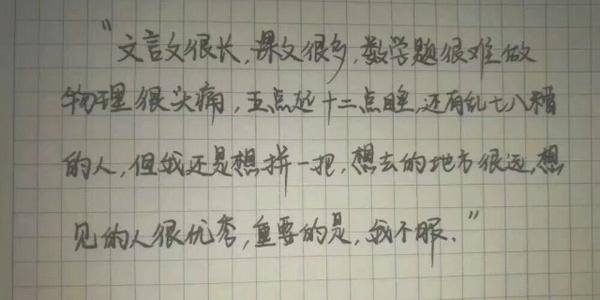 “文言文很长,课文很多,数学题很难做
物理很头痛,五点起十二点睡,还有乱七八糟
的人,但我还是想拼一把,想去的地方很远,想
见的人很优秀,重要的是,我不服.”